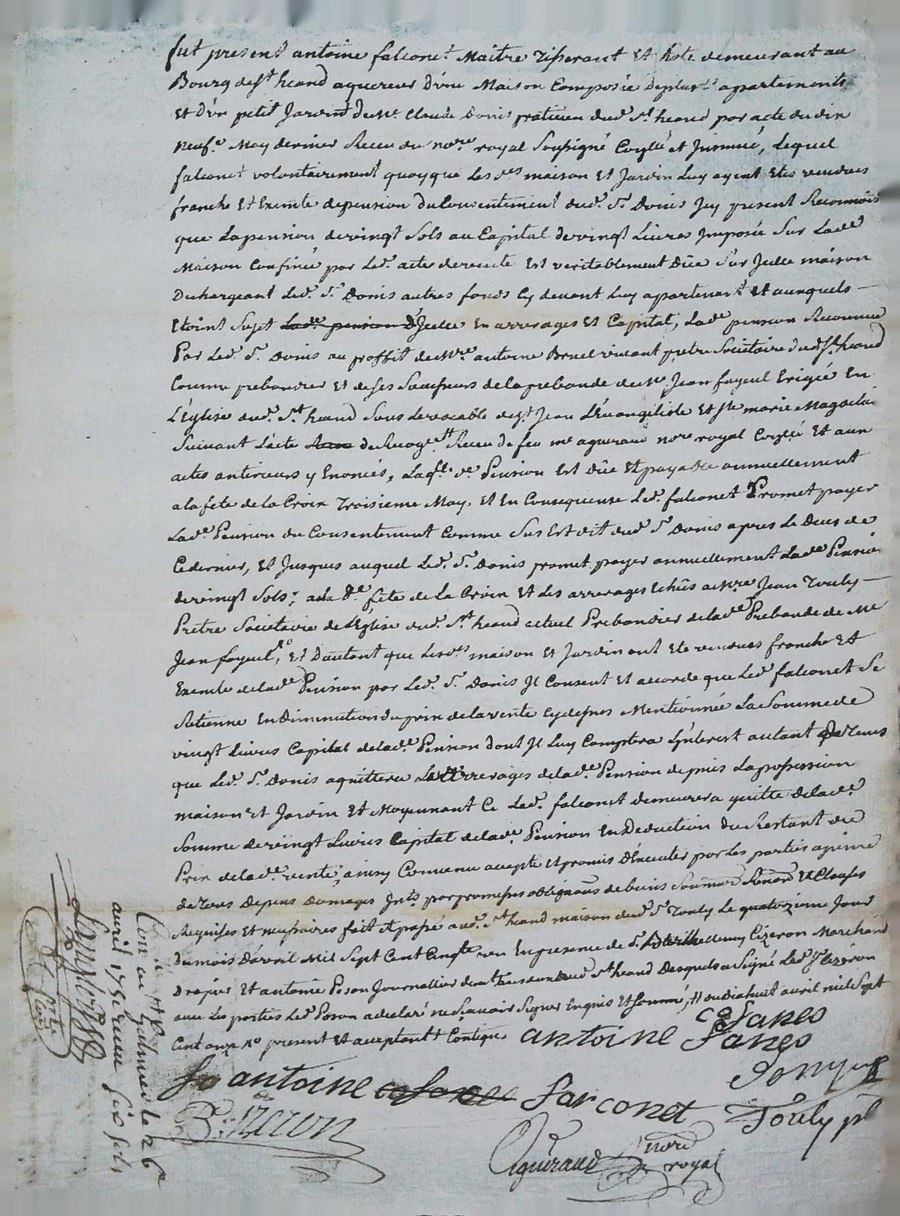 fut present antoine falconet Maitre Tisserant Et hote demeurant au
Bourg de st heand aquereur d'une Maison Composée de plusrs apartements
Et d'un petit Jardin de Me Claude Donis praticien dud. St heand par acte du dix
neufe May dernier Receu du nore royal Soussigné Coñllé et Jnsinué, Lequel
falconet volontairement quoyque Les des maison Et Jardin Luy ayent Etés vendues
franche Et Exemte de pension du Consentement dud. Sr Donis Jcy present Reconnoit
que La pension de vingt Sols au Capital de vingt Livres Jmposée Sur Lade
Maison Confinée par Led. acte de vente Est veritablement Düe Sur Jcelle maison
Dechargeant Led. Sr Donis autres fonds Cy devant Luy apartenant Et auxquels
Etoint Sujet Lade pension d'Jcelle En arrerages Et Capital, Lade pension Reconnue
Par Led. Sr Donis au proffit de Mre antoine Bruel vivant pretre Societaire dud. St heand
Comme prebandier Et de Ses Successeurs de la prebande de Me Jean fayeul Erigée En
L'Eglise dud. St heand Sous Le vocable de St Jean L'Evangeliste Et Ste marie Magdelai
Suivant L'acte de Recu de feu me aguiraud nore royal Et aux
actes anterieurs y Enoncés, Laqlle de Pension Est Düe Et payable annuellement
a la fete de la Croix Troisieme May, Et En Consequense Led. falconet Promet payer
Lade Pension du Consentement Comme Sus Est dit dud. Sr Donis apres Le Deces de
Ce dernier, Et Jusques auquel Led. Sr Donis promet payer annuellement Lade Pension
de vingt Sols, a la de fete de La Croix Et Les arrerages Echüs a Mre Jean Touly
Pretre Societaire de L'Eglise dud. St heand actuel Prebandier de lade Prebande de Me
Jean fayeul, Et D'autant que Les des maison Et Jardin ont Eté vendues franche Et
Exemte de lade Pension par Led. Sr Donis Jl Consent Et accorde que Led. falconet Se
Retienne En Diminution du prix de la vente Cy dessus Mentionnée La Somme de
vingt Livres Capital de lade Pension dont Jl Luy Comptera L'Jnterest autant De Tems
que Led. Sr Donis aquittera Les arrerages de lade Pension depuis La possession
maison Et Jardin Et Moyennant Ce Led. falconet demeurera quitte De lade
Somme de vingt Livres Capital de lade Pension En Deduction du Restant du
Prix de lade vente, ainsy Convenu accepté Et promis D'Executer par Les parties a peine
de Tous Depens Domages Jnts par promesses obligaons de biens Soumons Renons Et Clauses
Requises Et necessaires fait Et passé aud. St heand maison dud. Sr Touly Le quatorzieme Jour
Du mois D'avril Mil Sept Cent Cinqte En presence de Sr Cizeron Marchand
Drapier Et antoine Poson Journalier St heand Desquels a Signé Led. Sr Cizeron
avec Les parties Led. Poson a declaré ne Scavoir Signer Enquis Et Sommé, dixhuit avril mil Sept
Cent onze present Et acceptant
antoine
antoine
Farconet
Donys
Touly pt
Cizeron
Aguiraud nore royal
Con au
le 26
avril 175
Recu six sols